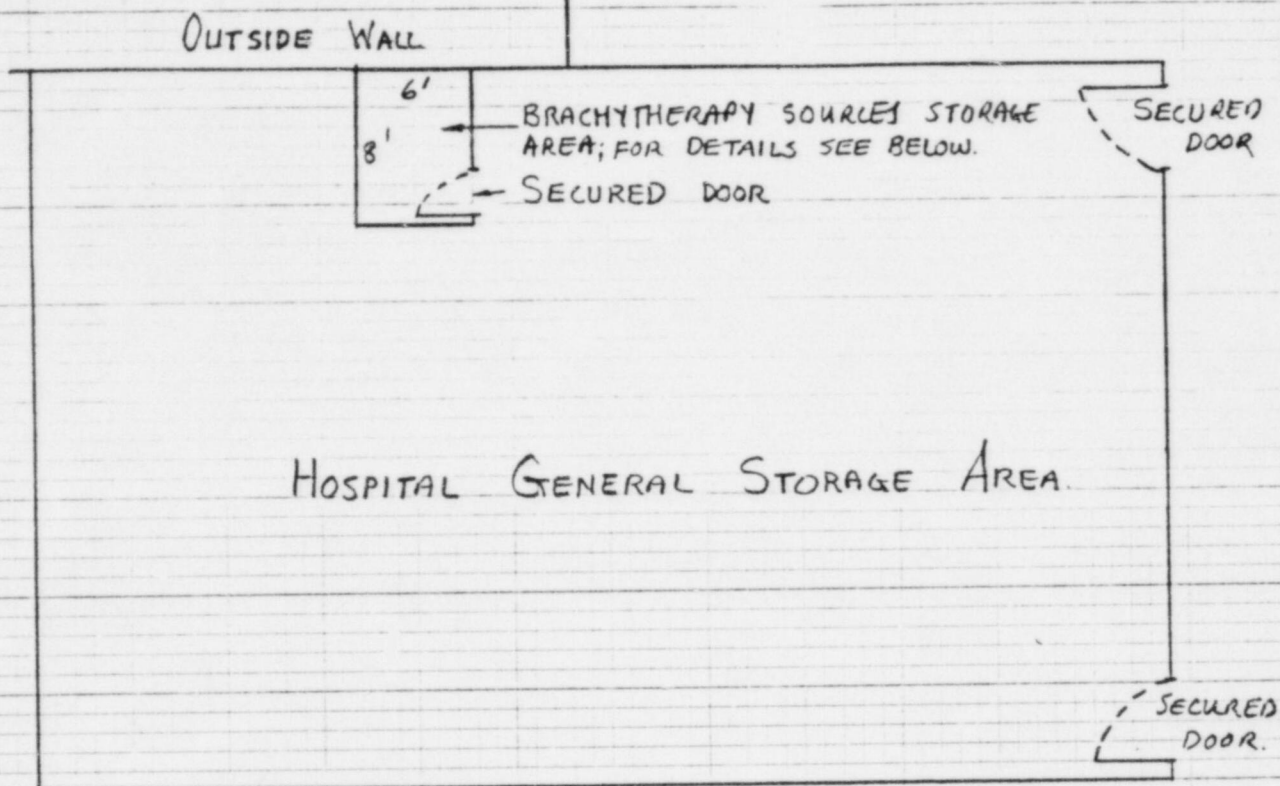 OUTSIDE WALL
6'
8'
BRACHYTHERAPY SOURCES STORAGE
AREA; FOR DETAILS SEE BELOW.
SECURED DOOR
SECURED
DOOR
HOSPITAL GENERAL STORAGE AREA.
SECURED
DOOR.